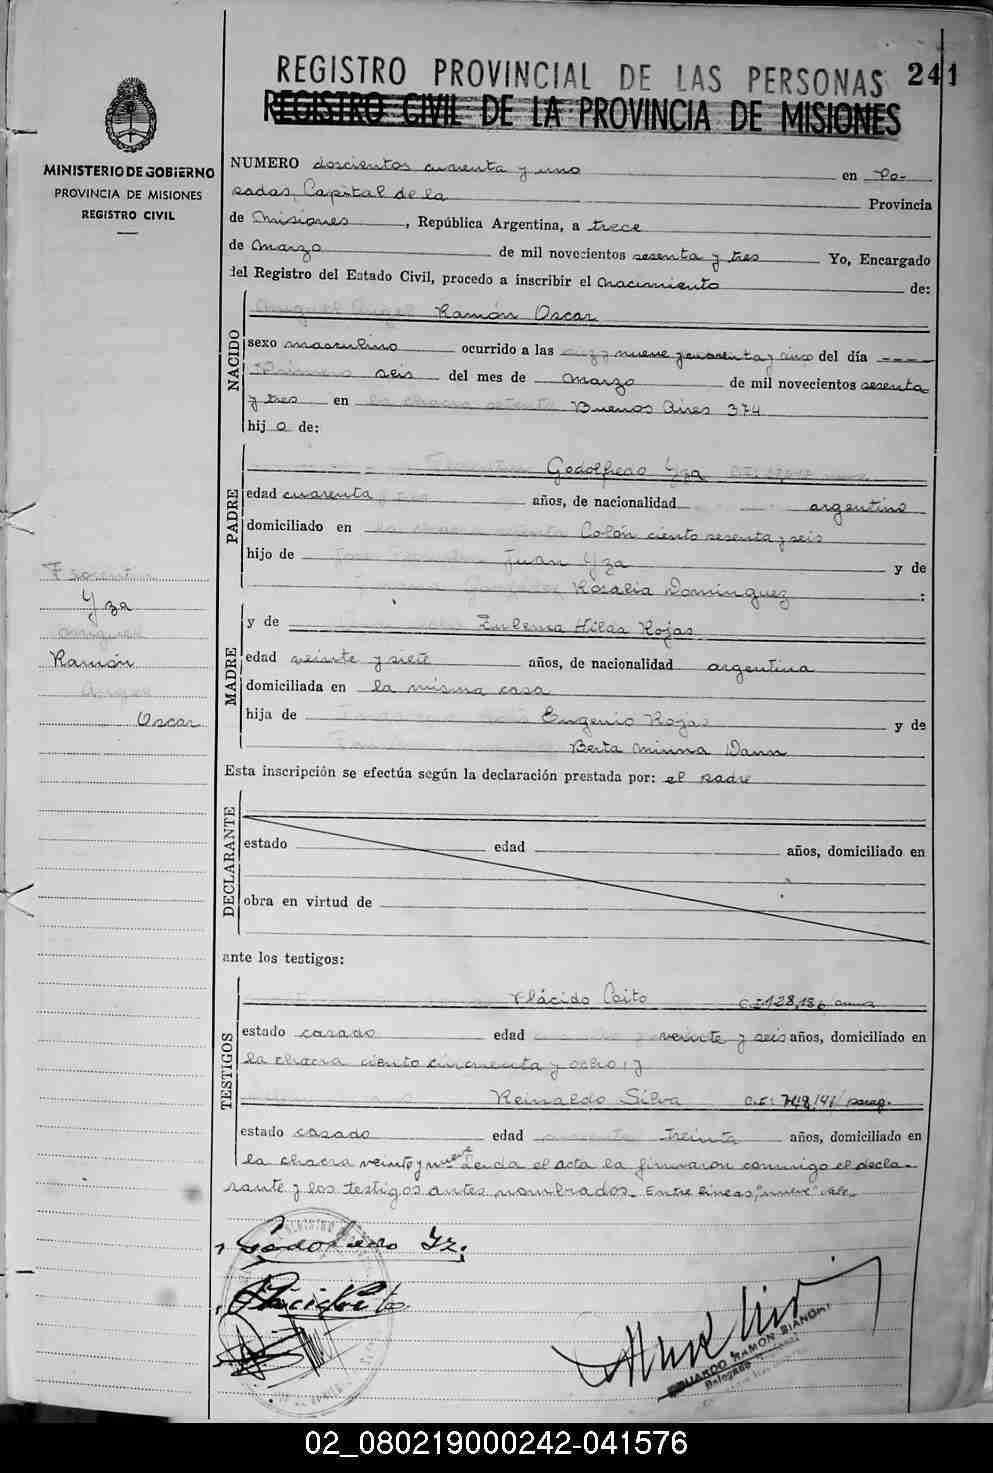 REGISTRO PROVINCIAL DE LAS PERSONAS 241
REGISTRO CIVIL DE LA PROVINCIA DE MISIONES
MINISTERIO DE GOBIERNO
PROVINCIA DE MISIONES
REGISTRO CIVIL
NUMERO doscientos cuarenta y uno en Po-
sadas, Capital de la Provincia
de Misiones, República Argentina, a trece
de Marzo de mil novecientos sesenta y tres Yo, Encargado
del Registro del Estado Civil, procedo a inscribir el Nacimiento de:
Ramón Oscar
NACIDO
sexo masculino ocurrido a las nueve y cuarenta y cinco del día ----
seis del mes de Marzo de mil novecientos sesenta
y tres en Buenos Aires 374
hij o de:
PADRE
Godolfredo Yza
edad cuarenta años, de nacionalidad argentino
domiciliado en Colón ciento sesenta y seis
hijo de Juan Yza y de
Rosalia Dominguez :
MADRE
y de Zulema Hilda Rojas
edad veinte y siete años, de nacionalidad argentina
domiciliada en la misma casa
hija de Eugenio Rojas y de
Berta Minna Dann
Yza
Ramón
Oscar
Esta inscripción se efectúa según la declaración prestada por: el padre
DECLARANTE
estado edad años, domiciliado en
obra en virtud de
ante los testigos:
TESTIGOS
Plácido Coito C.I. 128,186
estado casado edad veinte y seis años, domiciliado en
la chacra ciento cincuenta y ocho; y
Reinaldo Silva C.I: parag.
estado casado edad treinta años, domiciliado en
la chacra veinte y nueve Leida el acta la firmaron conmigo el decla-
rante y los testigos antes nombrados. Entre líneas: "nueve" vale
EDUARDO RAMON BIANCHI
02_080219000242-041576